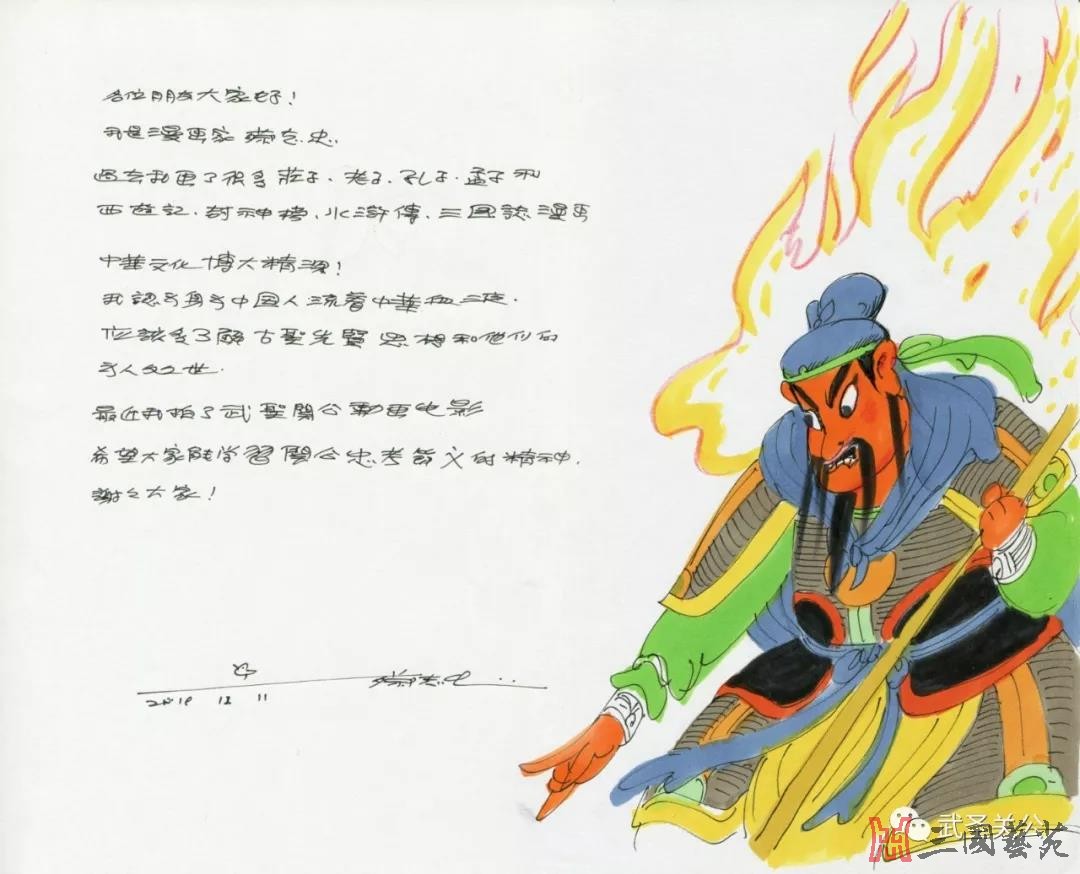 各位朋友大家好!
我是漫画家 蔡志忠.
過去我画了很多莊子、老子、孔子、孟子和
西遊記、封神榜、水滸傳、三国誌漫画
中華文化博大精深!
我認为身为中国人流著中華血液.
应該多了解古聖先賢思想和他们的
为人处世.
最近我拍了武聖關公動画电影
希望大家能学習關公忠孝節义的精神,
謝々大家!
蔡志忠
2019 12 11
武圣关公
三國藝苑